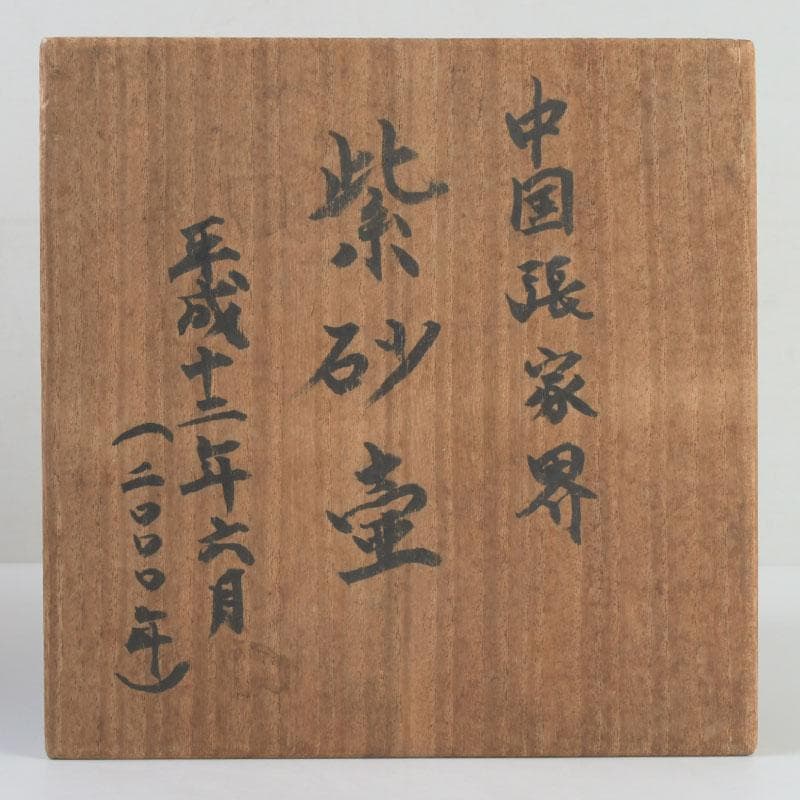 中国張家界
紫砂壷
平成十二年六月
(二〇〇〇年)